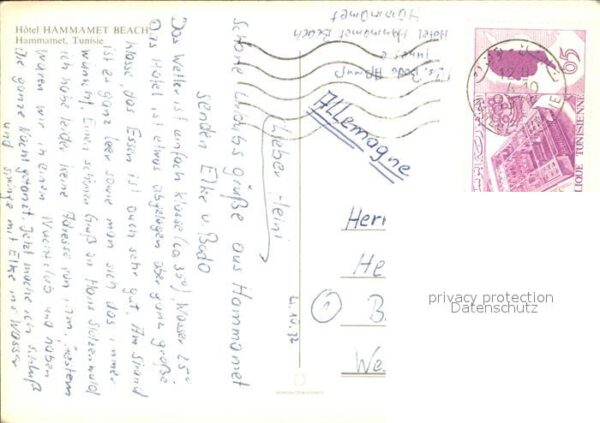 Hôtel HAMMAMET BEACH
Hammamet, Tunisie
Hotel Hammamet Beach
Hammamet
4.10.
Lieber Heini
Schöne Urlaubsgrüße aus Hammamet
senden Elke u. Bodo
Das Wetter ist einfach Klasse (ca 35°) Wasser 25°
Das Hotel ist etwas abgelegen aber ganz große
Klasse, das Essen ist auch sehr gut. Am Strand
ist es ganz leer so wie man sich das immer
wünscht. Einen schönen Gruß an Hans
ich habe leider keine Adresse von ihm, gestern
waren wir in einen Nachtclub und haben
die ganze Nacht getanzt. Jetzt mache ich schluß
und springe mit Elke ins Wasser
Allemagne
Herr
He
1
B
We
65
TUNISIENNE
privacy protection
Datenschutz